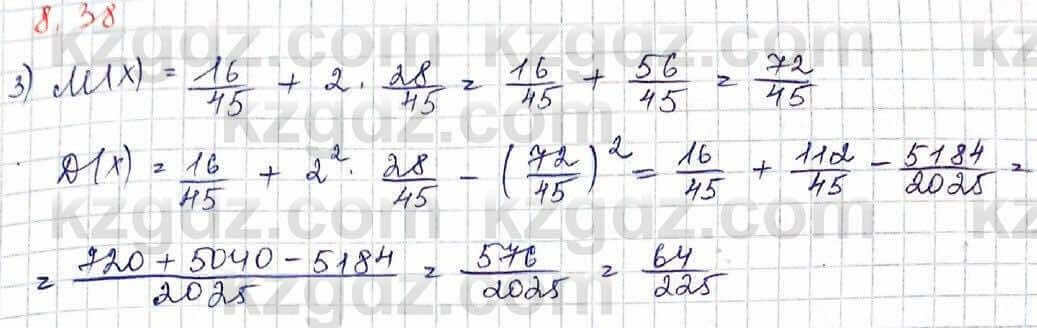 8.38
3) M(X) = 16/45 + 2 · 28/45 = 16/45 + 56/45 = 72/45
D(X) = 16/45 + 2² · 28/45 − (72/45)² = 16/45 + 112/45 − 5184/2025 =
= 720 + 5040 − 5184/2025 = 576/2025 = 64/225
kzgdz.com
kzgdz.com
kzgdz.com
kzgdz.com